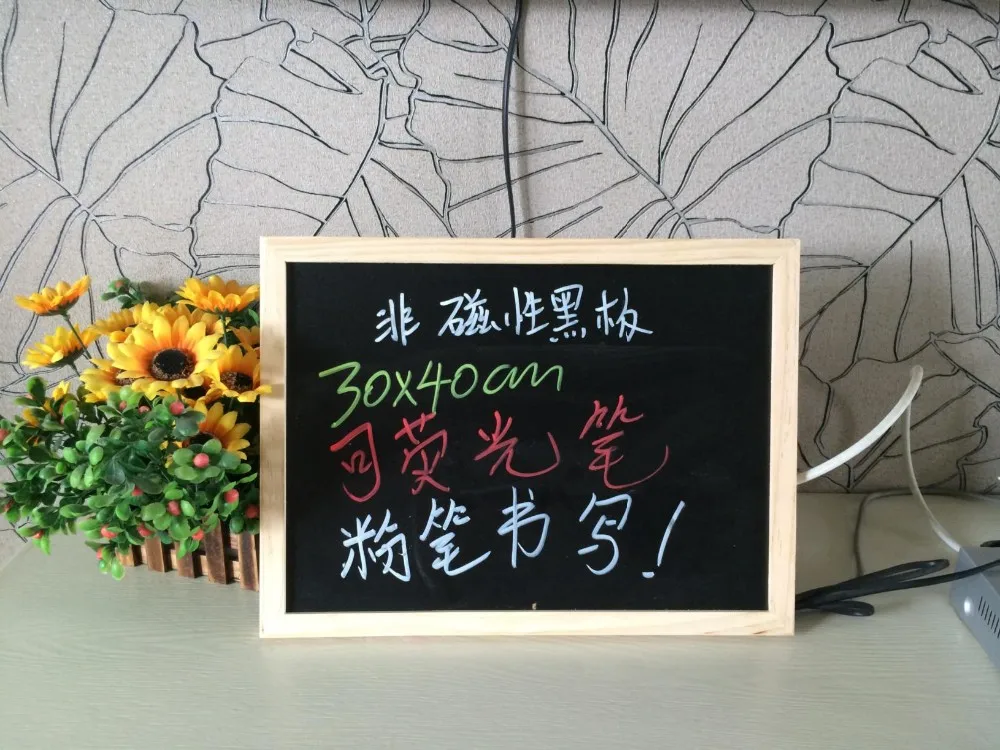 非磁性黑板
30x40cm
可荧光笔
粉笔书写!